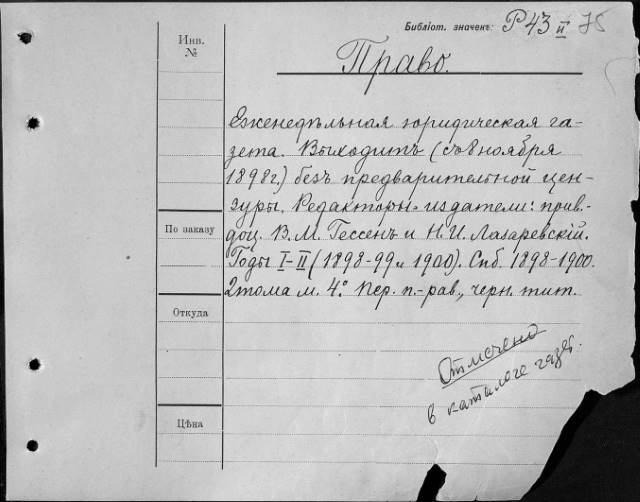 Библіот. значекъ: Р43 II 75
Инв.
№
Право.
Еженедѣльная юридическая га-
зета. Выходитъ (съ 8 ноября
1898 г.) безъ предварительной цен-
зуры. Редакторы-издатели: прив.-
доц. В. М. Гессенъ и Н. И. Лазаревскій.
По заказу
Годы I-II (1898-99 и 1900). Спб. 1898-1900.
2 тома м. 4°. Пер. п.-рав., черн. тит.
Откуда
Отмечено
в каталоге газет.
Цѣна